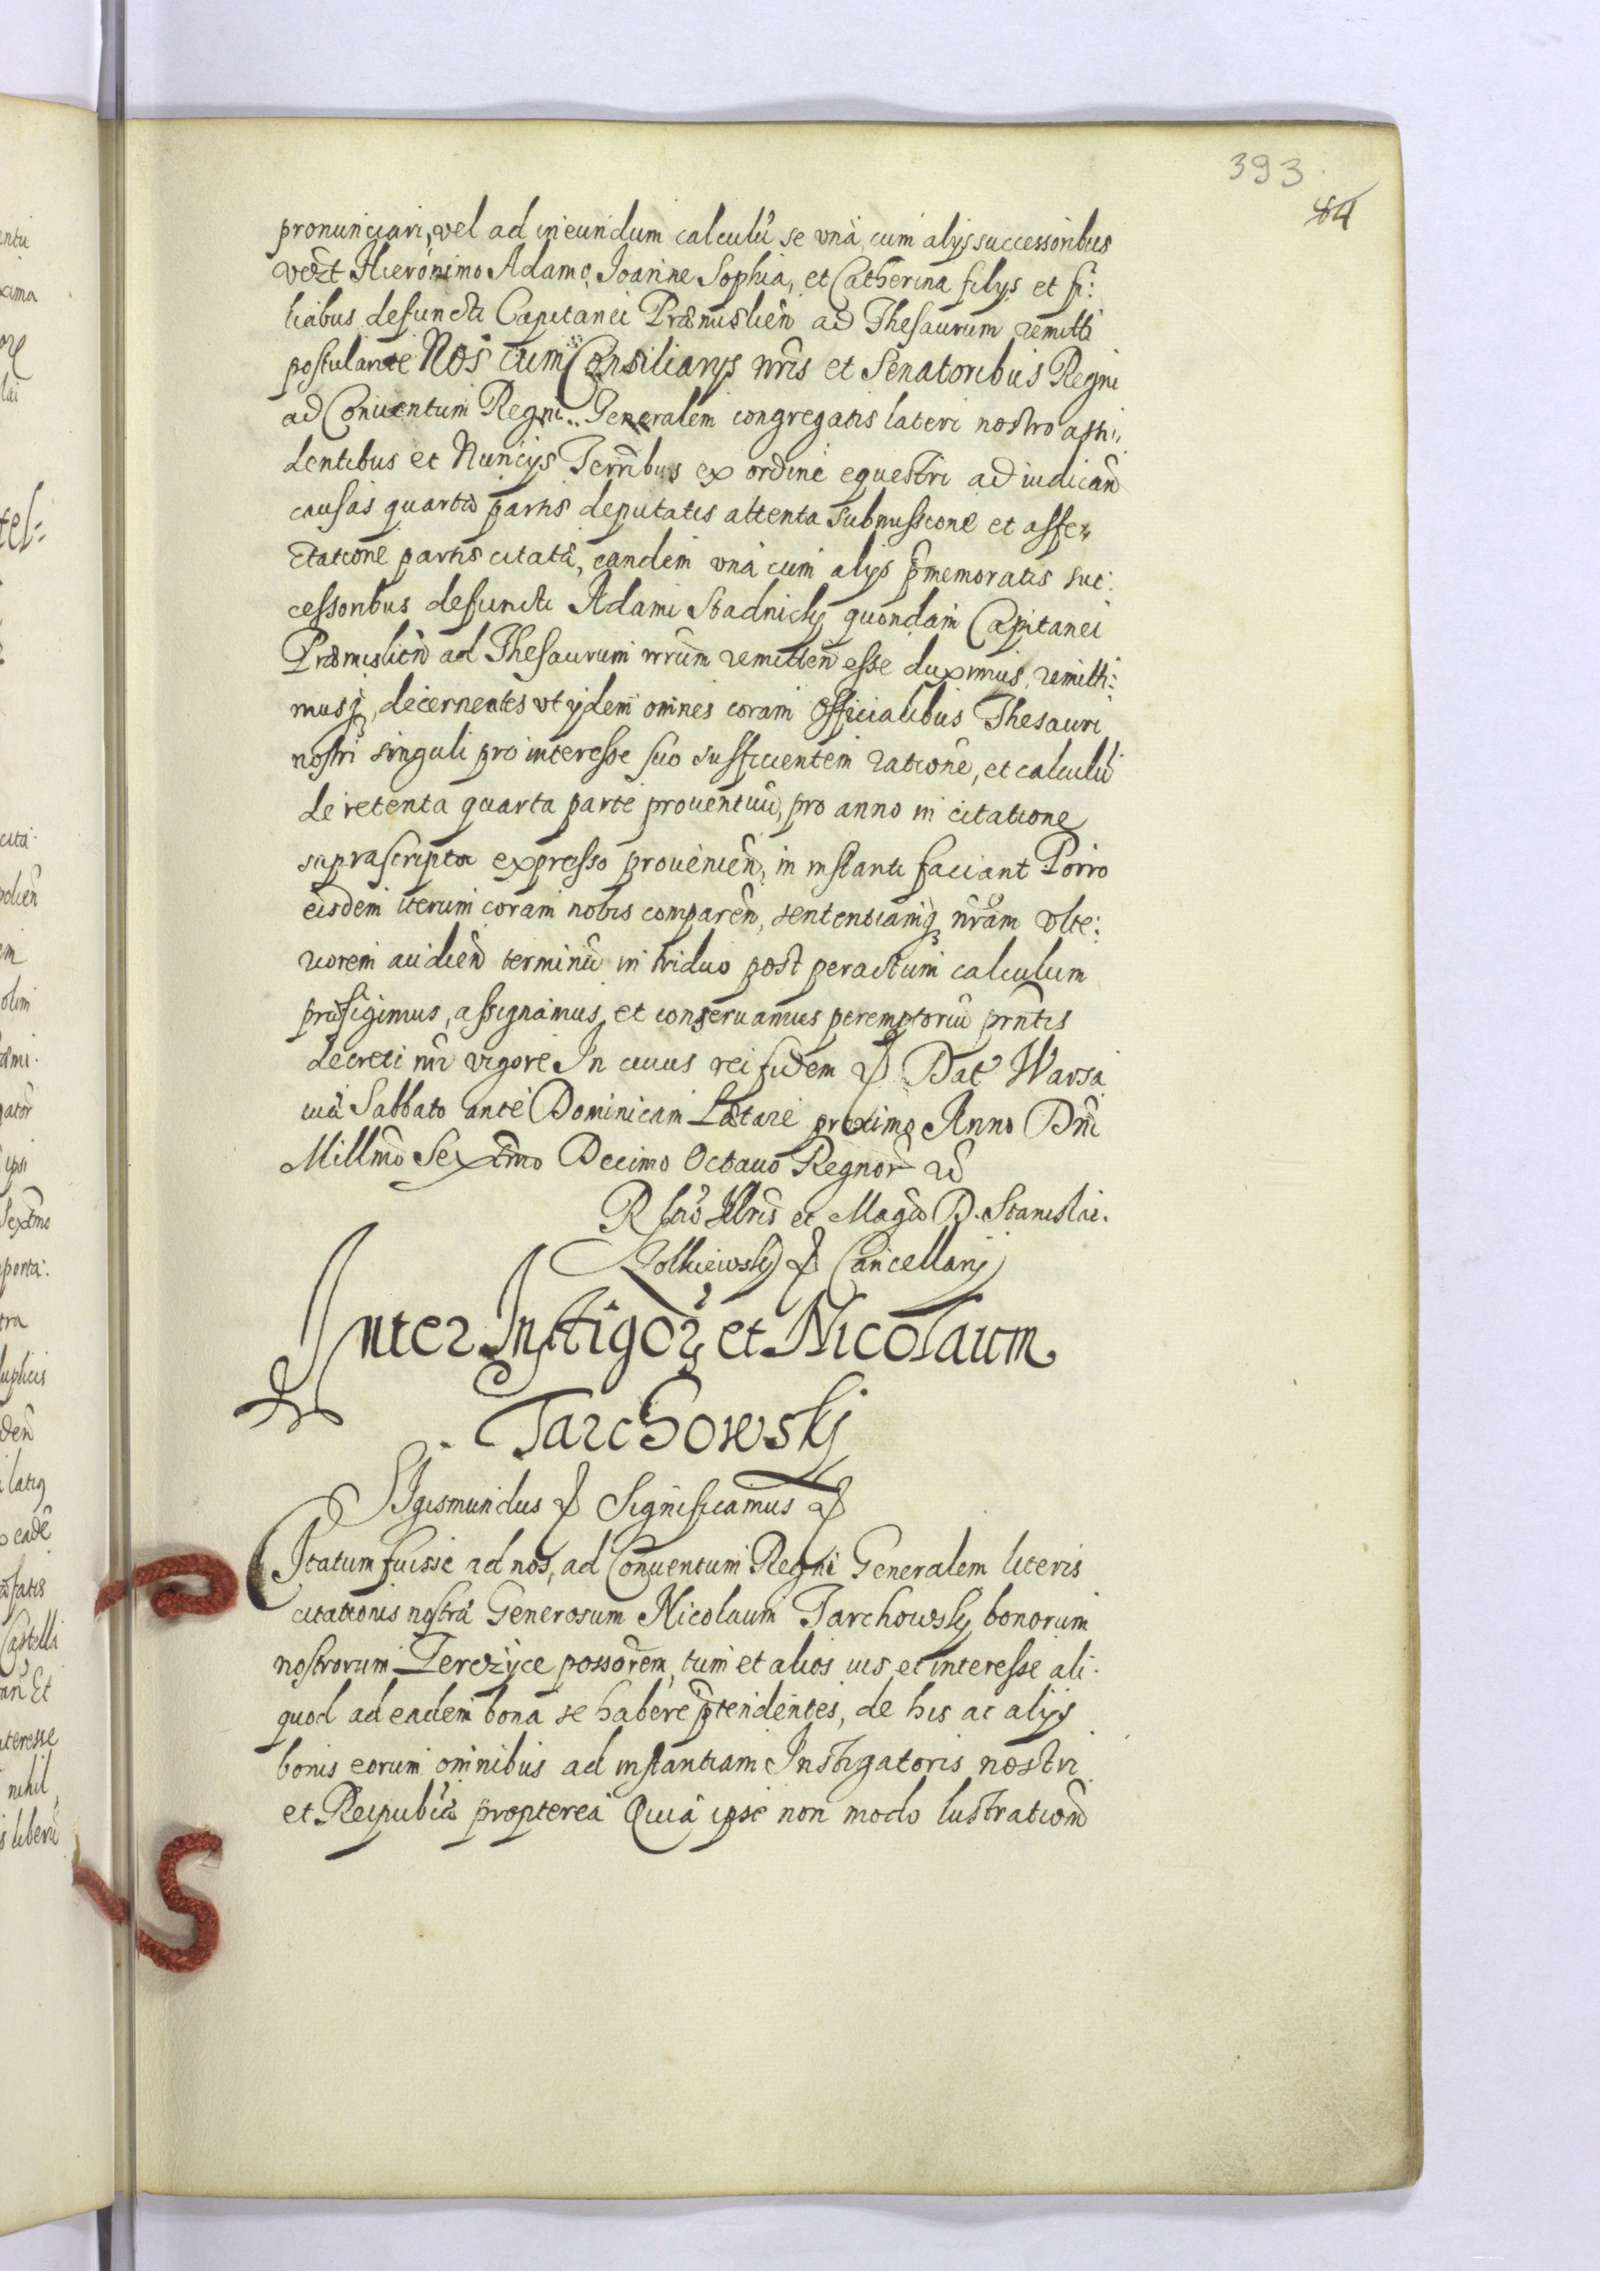 393
64
pronunciari, vel ad ineundum calculũ se vnà cum alys successoribus
Hieronimo Adamo, Joanne Sophia, et Catherina filys et fi:
liabus defuncti Capitanei Præmislien̄ ad Thesaurum remitti
postulante Nos cum Consiliarys nr̃is et Senatoribus Regni
ad Conuentum Regni Generalem congregatis lateri nostro assi„
dentibus et Nuncys Terr̃ibus ex ordine equestri ad iudican̄
causas quartæ partis deputatis attenta submissione et affe„
ctatione partis citatæ, eandem vnà cum alys p̃memoratis suc:
cessoribus defuncti Adami Stadnicky quondam Capitanei
Præmislien̄ ad Thesaurum nr̃um remitten̄ esse duximus, remitti:
musq₃, decernentes vt ydem omnes coram Officialibus Thesauri
nostri singuli pro interesse suo sufficientem rationẽ, et calculũ
de retenta quarta parte prouentuũ, pro anno in citatione
suprascripta expresso prouenien̄, in instanti faciant Porro
eisdem iterum coram nobis comparen̄, sententiamq₃ nr̃am vlte:
riorem audien̄ terminũ in triduo post peractum calculum
præfigimus, assignamus, et conseruamus peremptoriũ pr̃ntis
decreti nr̃i vigore In cuius rei fidem & Dat Warsa
uiæ Sabbato ante Dominicam Lætare proximo Anno Dn̄i
Millm̃o Sextm̃o Decimo Octauo Regnor̃ &
R Illr̃is et Magci D. Stanislai
Zolkiewsky & Cancellarij
Inter Instigor̃ et Nicolaum
Tarchowsky
SIgismundus & Significamus &
CItatum fuisse ad nos, ad Conuentum Regni Generalem literis
citationis nostræ Generosum Nicolaum Tarchowsky bonorum
nostrorum Terczÿce possorẽm, tum et alios ius et interesse ali:
quod ad eadem bona se habere p̃tendentes, de his ac alijs
bonis eorum omnibus ad instantiam Instigatoris nostri
et Reipub̃cæ propterea Quia ipse non modo lustration̄